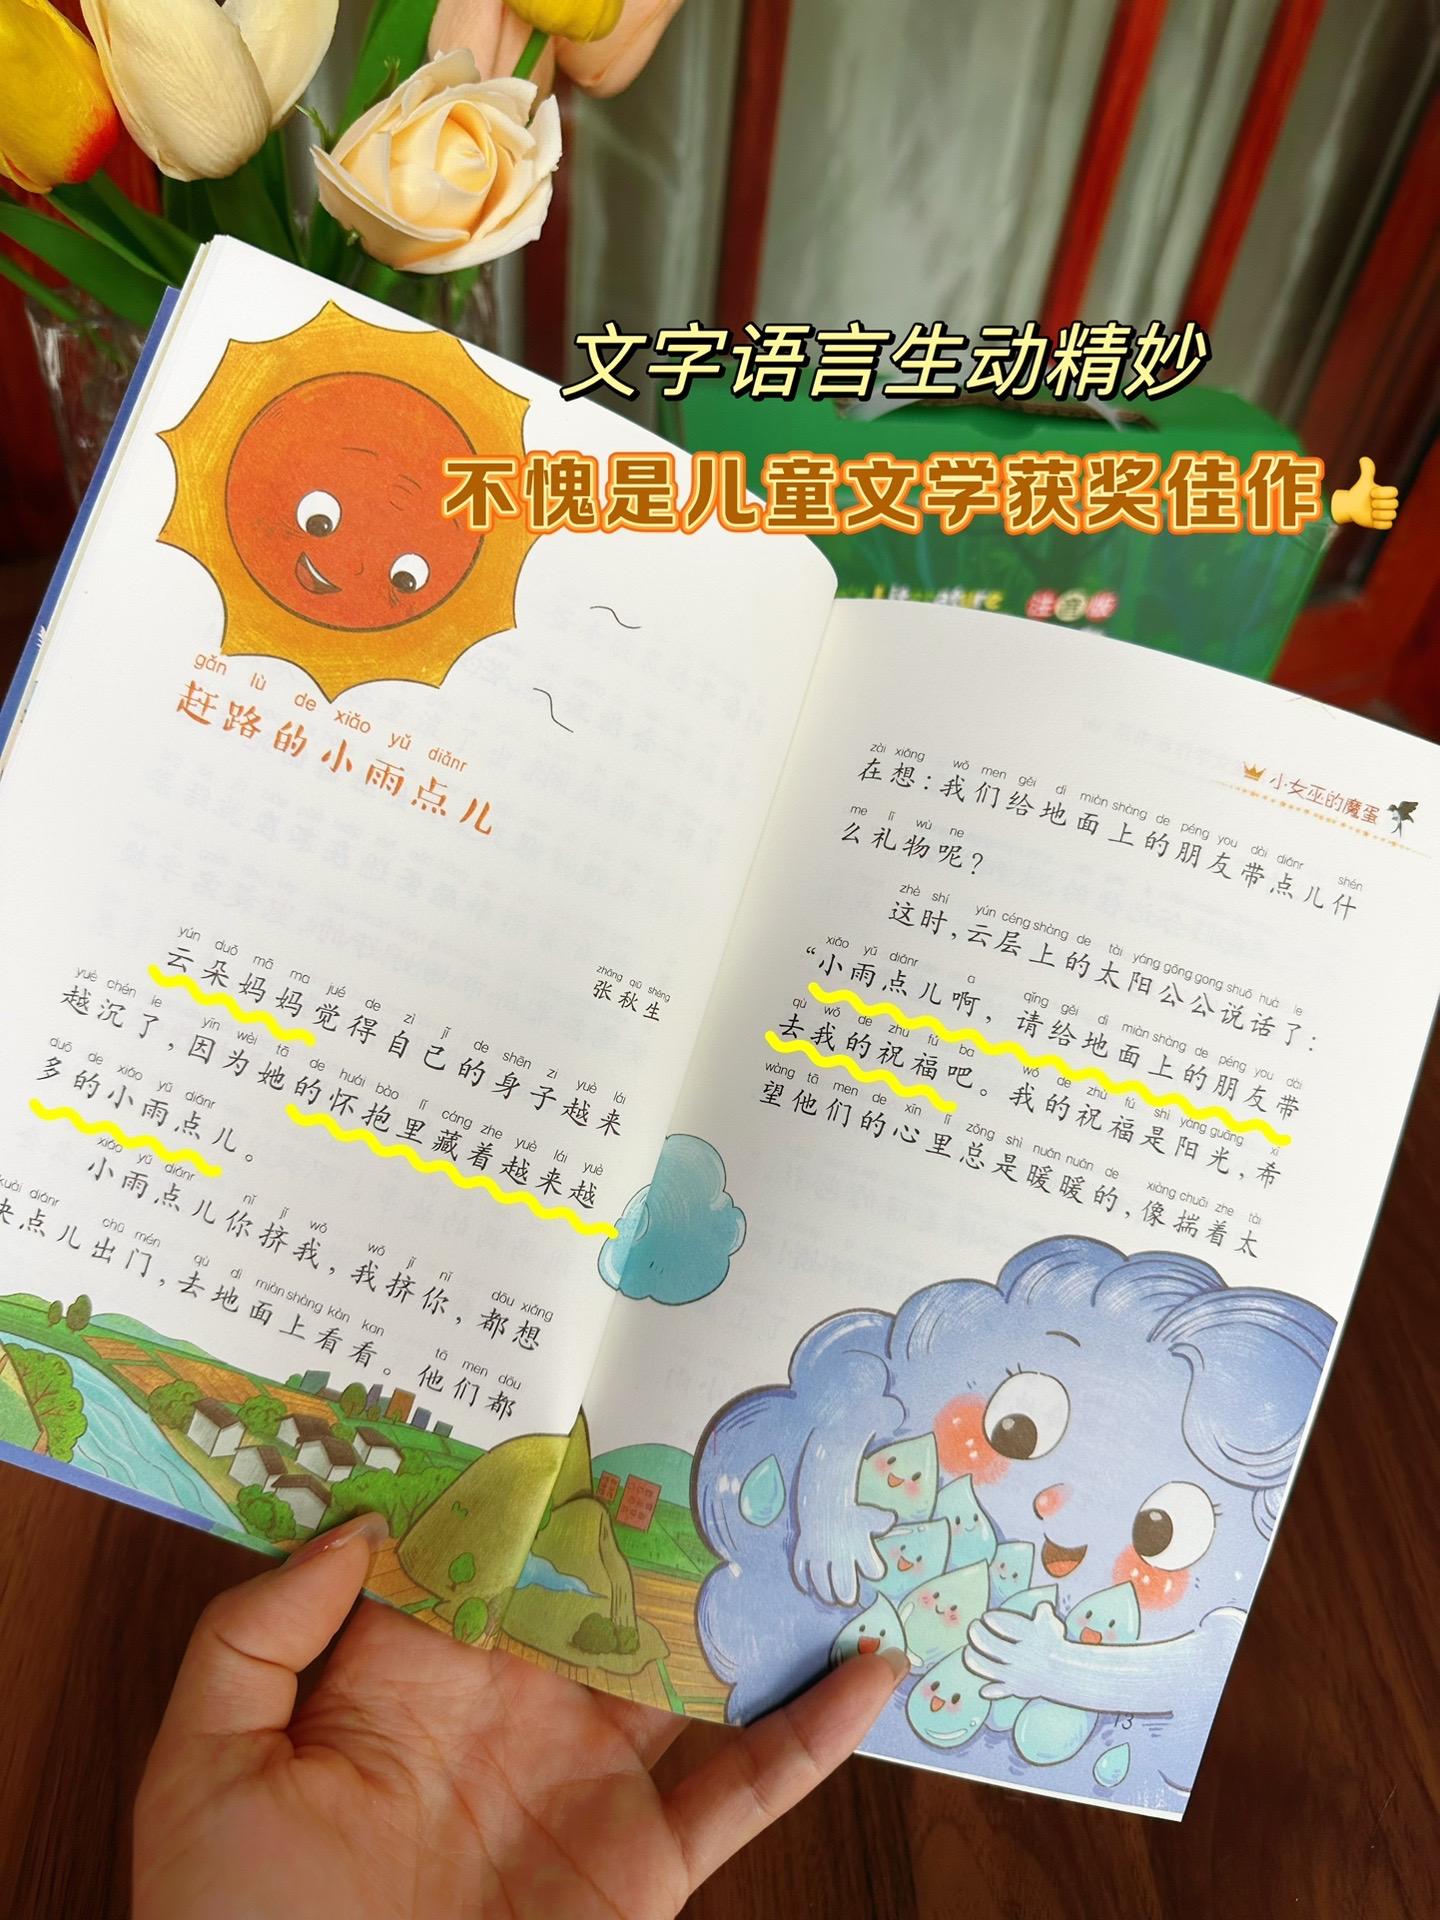 文字语言生动精妙
不愧是儿童文学获奖佳作👍
注音版
gǎn lù de xiǎo yǔ diǎnr
赶路的小雨点儿
zhāng qiū shēng
张秋生
yún duǒ mā ma jué de zì jǐ de shēn zi yuè lái
云朵妈妈觉得自己的身子越来
yuè chén le yīn wèi tā de huái bào lǐ cáng zhe yuè lái yuè
越沉了，因为她的怀抱里藏着越来越
duō de xiǎo yǔ diǎnr
多的小雨点儿。
xiǎo yǔ diǎnr nǐ jǐ wǒ wǒ jǐ nǐ dōu xiǎng
小雨点儿你挤我，我挤你，都想
kuài diǎnr chū mén qù dì miàn shàng kàn kan tā men dōu
快点儿出门，去地面上看看。他们都
小女巫的魔蛋
zài xiǎng wǒ men gěi dì miàn shàng de péng you dài diǎnr shén
在想：我们给地面上的朋友带点儿什
me lǐ wù ne
么礼物呢？
zhè shí yún céng shàng de tài yáng gōng gong shuō huà le
这时，云层上的太阳公公说话了：
xiǎo yǔ diǎnr a qǐng gěi dì miàn shàng de péng you dài
“小雨点儿啊，请给地面上的朋友带
qù wǒ de zhù fú ba wǒ de zhù fú shì yáng guāng xī
去我的祝福吧。我的祝福是阳光，希
wàng tā men de xīn lǐ zǒng shì nuǎn nuǎn de xiàng chuāi zhe tài
望他们的心里总是暖暖的，像揣着太
13